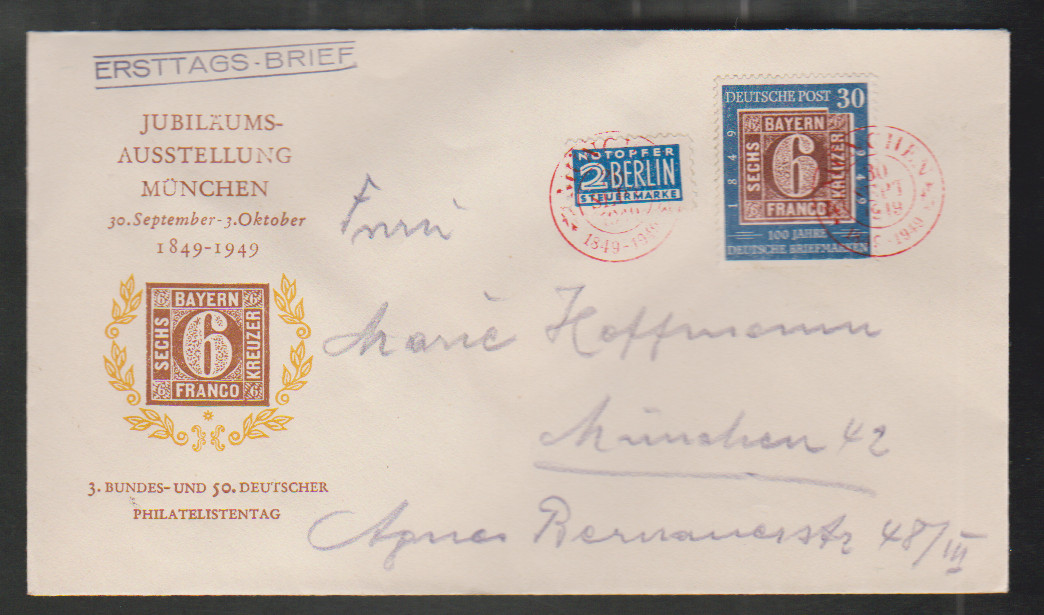 ERSTTAGS-BRIEF
JUBILÄUMS-
AUSSTELLUNG
MÜNCHEN
30. September - 3. Oktober
1849-1949
BAYERN
SECHS
6
KREUZER
FRANCO
3. BUNDES- UND 50. DEUTSCHER
PHILATELISTENTAG
NOTOPFER
2 BERLIN
STEUERMARKE
1849-1949
DEUTSCHE POST 30
1849
BAYERN
SECHS
6
KREUZER
FRANCO
1949
100 JAHRE
DEUTSCHE BRIEFMARKEN
30
1949
Marie Hoffmann
München 42
Agnes Bernauerstr 48/III